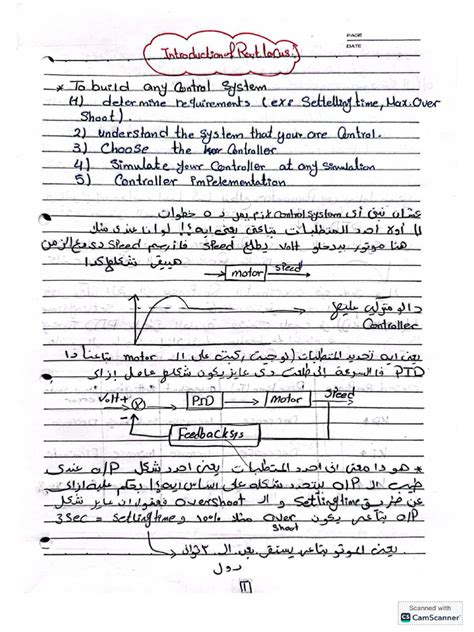 PAGE
DATE
Introduction of Root locus:
* To build any Control System
(1) determine requirements (exs Settelling time, Max. Over
Shoot).
2) understand the System that your are Control.
3) Choose the Controller
4) Simulate your Controller at any Simulation
5) Controller Impelementation
عشان نبني أي Control System لازم يمر د 5 خطوات
أولا احدد المتطلبات بتاعتي يعني ايه؟! لو انا عندي مثلا
هنا موتور بيدخلو Volt يطلع Speed فا نرسم Speed دي مع الزمن
هيبقي شكلها كدا
motor speed
دا لو متركب عليه
Controller
يعني ايه تحديد المتطلبات لو جيت ركبت على ال motor بتاعنا دا
PID فا السرعة الي طلعت دي عايز يكون شكلها عامل ازاي
Volt + PID Motor Speed
-
Feedback sys
* هو دا معنى اني احدد المتطلبات يعني احدد شكل O/P عندي
طيب ال O/P بيتحدد شكله على اساس ايه؟!
عن طريق Settling time و ال Overshoot فهقول ان عايز شكل
O/P بتاعي يكون Over مثلا 10% و Settling time = 3 sec
shoot
يعني الموتور بتاعي يستقر بعد ال 3 ثواني
دول
1
Scanned with
CS CamScanner